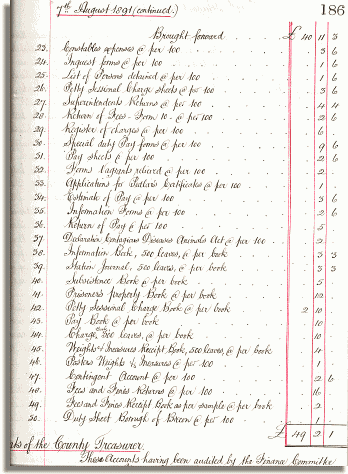 7th August 1891 (continued.) 186
Brought forward £ 40 11 3
23. Constables expenses @ per 100 3 6
24. Inquest forms @ per 100 1 6
25. List of Persons detained @ per 100 1 6
26. Petty Sessional Charge Sheets @ per 100 3 6
27. Superintendents Returns @ per 100 4 4
28. Return of Fees Form 10. @ per 100 2 6
29. Register of charges @ per 100 6
30. Special duty Pay forms @ per 100 9 6
31. Pay sheets @ per 100 2 6
32. Forms Vagrants relieved @ per 100 2
33. Applications for Pedlars Certificates @ per 100 1
34. Estimate of Pay @ per 100 3 6
35. Information Forms @ per 100 2 6
36. Return of Pay @ per 100 5
37. Declaration Contagious Diseases Animals Act @ per 100 2
38. Information Book, 500 leaves, @ per book 3 3
39. Station Journal, 500 leaves, @ per book 3 3
40. Subsistence Book @ per book 5
41. Prisoners property Book @ per book 12
42. Petty Sessional Charge Book @ per book 2 10
43. Pay Book @ per book 10
44. Charge, 500 leaves, @ per book 10
45. Weights & Measures Receipt Book, 500 leaves, @ per book 4
46. Posters Weights & Measures @ per 100 1
47. Contingent Account @ per 100 2 6
48. Fees and Fines Returns @ per 100 16
49. Fee and Fines Receipt Book as per sample @ per book 2
50. Duty Sheet Borough of Brecon @ per 100 1
£ 49 2 1
of the County Treasurer.
These Accounts having been audited by the Finance Committee